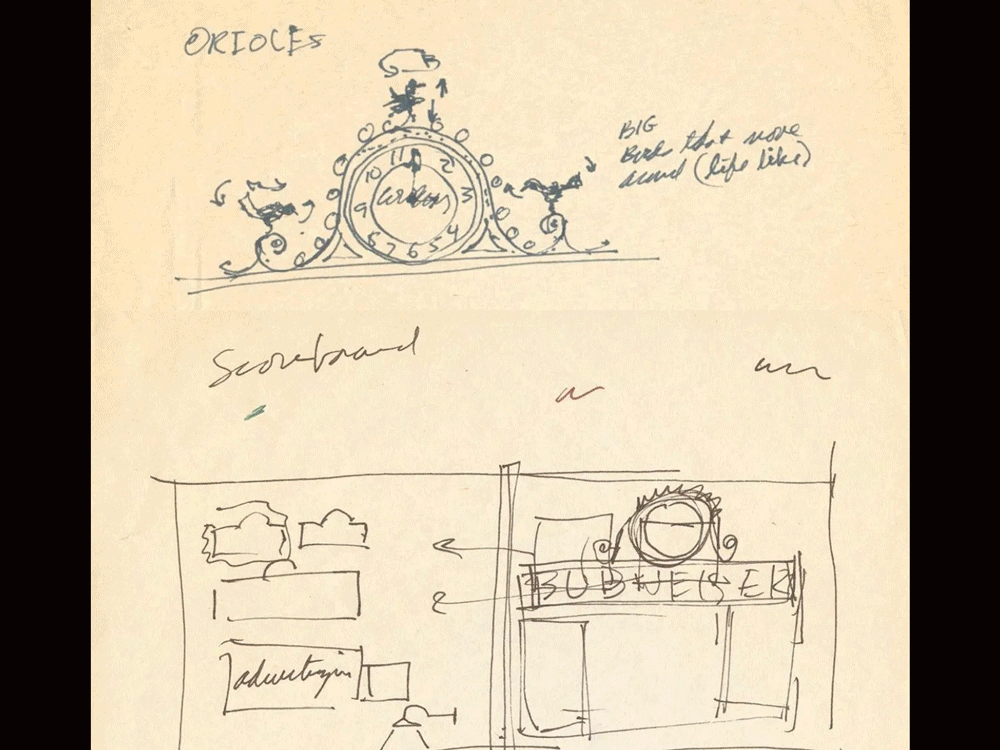 ORIOLES
BIG
Birds that move
around (life like)
11
10 2
9 3
8 4
7 6 5
Scoreboard
BUDWEISER
advertising